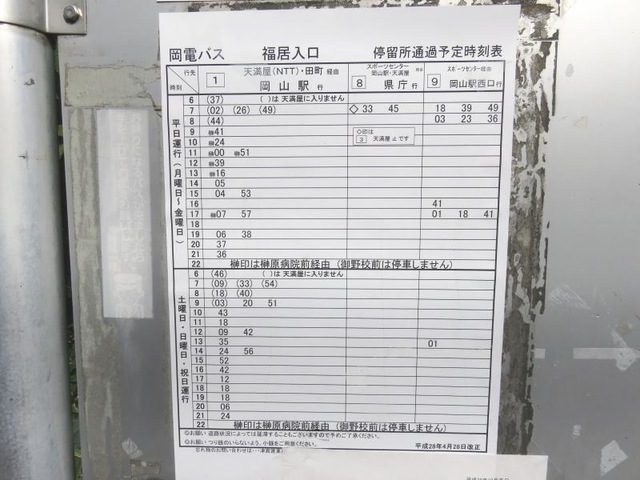 岡電バス 福居入口 停留所通過予定時刻表
行先 時刻 1 天満屋(NTT)・田町 経由 岡山駅 行 8 スポーツセンター 岡山駅・天満屋 経由 県庁 行 9 スポーツセンター 経由 岡山駅西口 行
平日運行(月曜日~金曜日)
6 (37) ( )は 天満屋に入りません
7 (02) (26) (49) ◇33 45 18 39 49
8 (44) 03 23 36
9 榊41 ◇印は 3 天満屋 止です
10 榊24
11 榊00 榊51
12 榊39
13 榊16
14 05
15 04 53
16 41
17 榊07 57 01 18 41
18
19 06 38
20 37
21 36
22 榊印は榊原病院前経由(御野校前は停車しません)
土曜日・日曜日・祝日運行
6 (46) ( )は 天満屋に入りません
7 (09) (33) (54)
8 (18) (40)
9 (03) 20 51
10 43
11 18
12 09 42
13 35 01
14 24 56
15 52
16 42
17 12
18 18
19 18
20 06
21 24
22 榊印は榊原病院前経由(御野校前は停車しません)
◎お願い 道路状況によっては延滞することもございますので予めご了承ください。
◎お願い つり銭のいらないよう、小銭をご用意ください。 平成28年4月28日改正
忘れ物のお問い合わせは